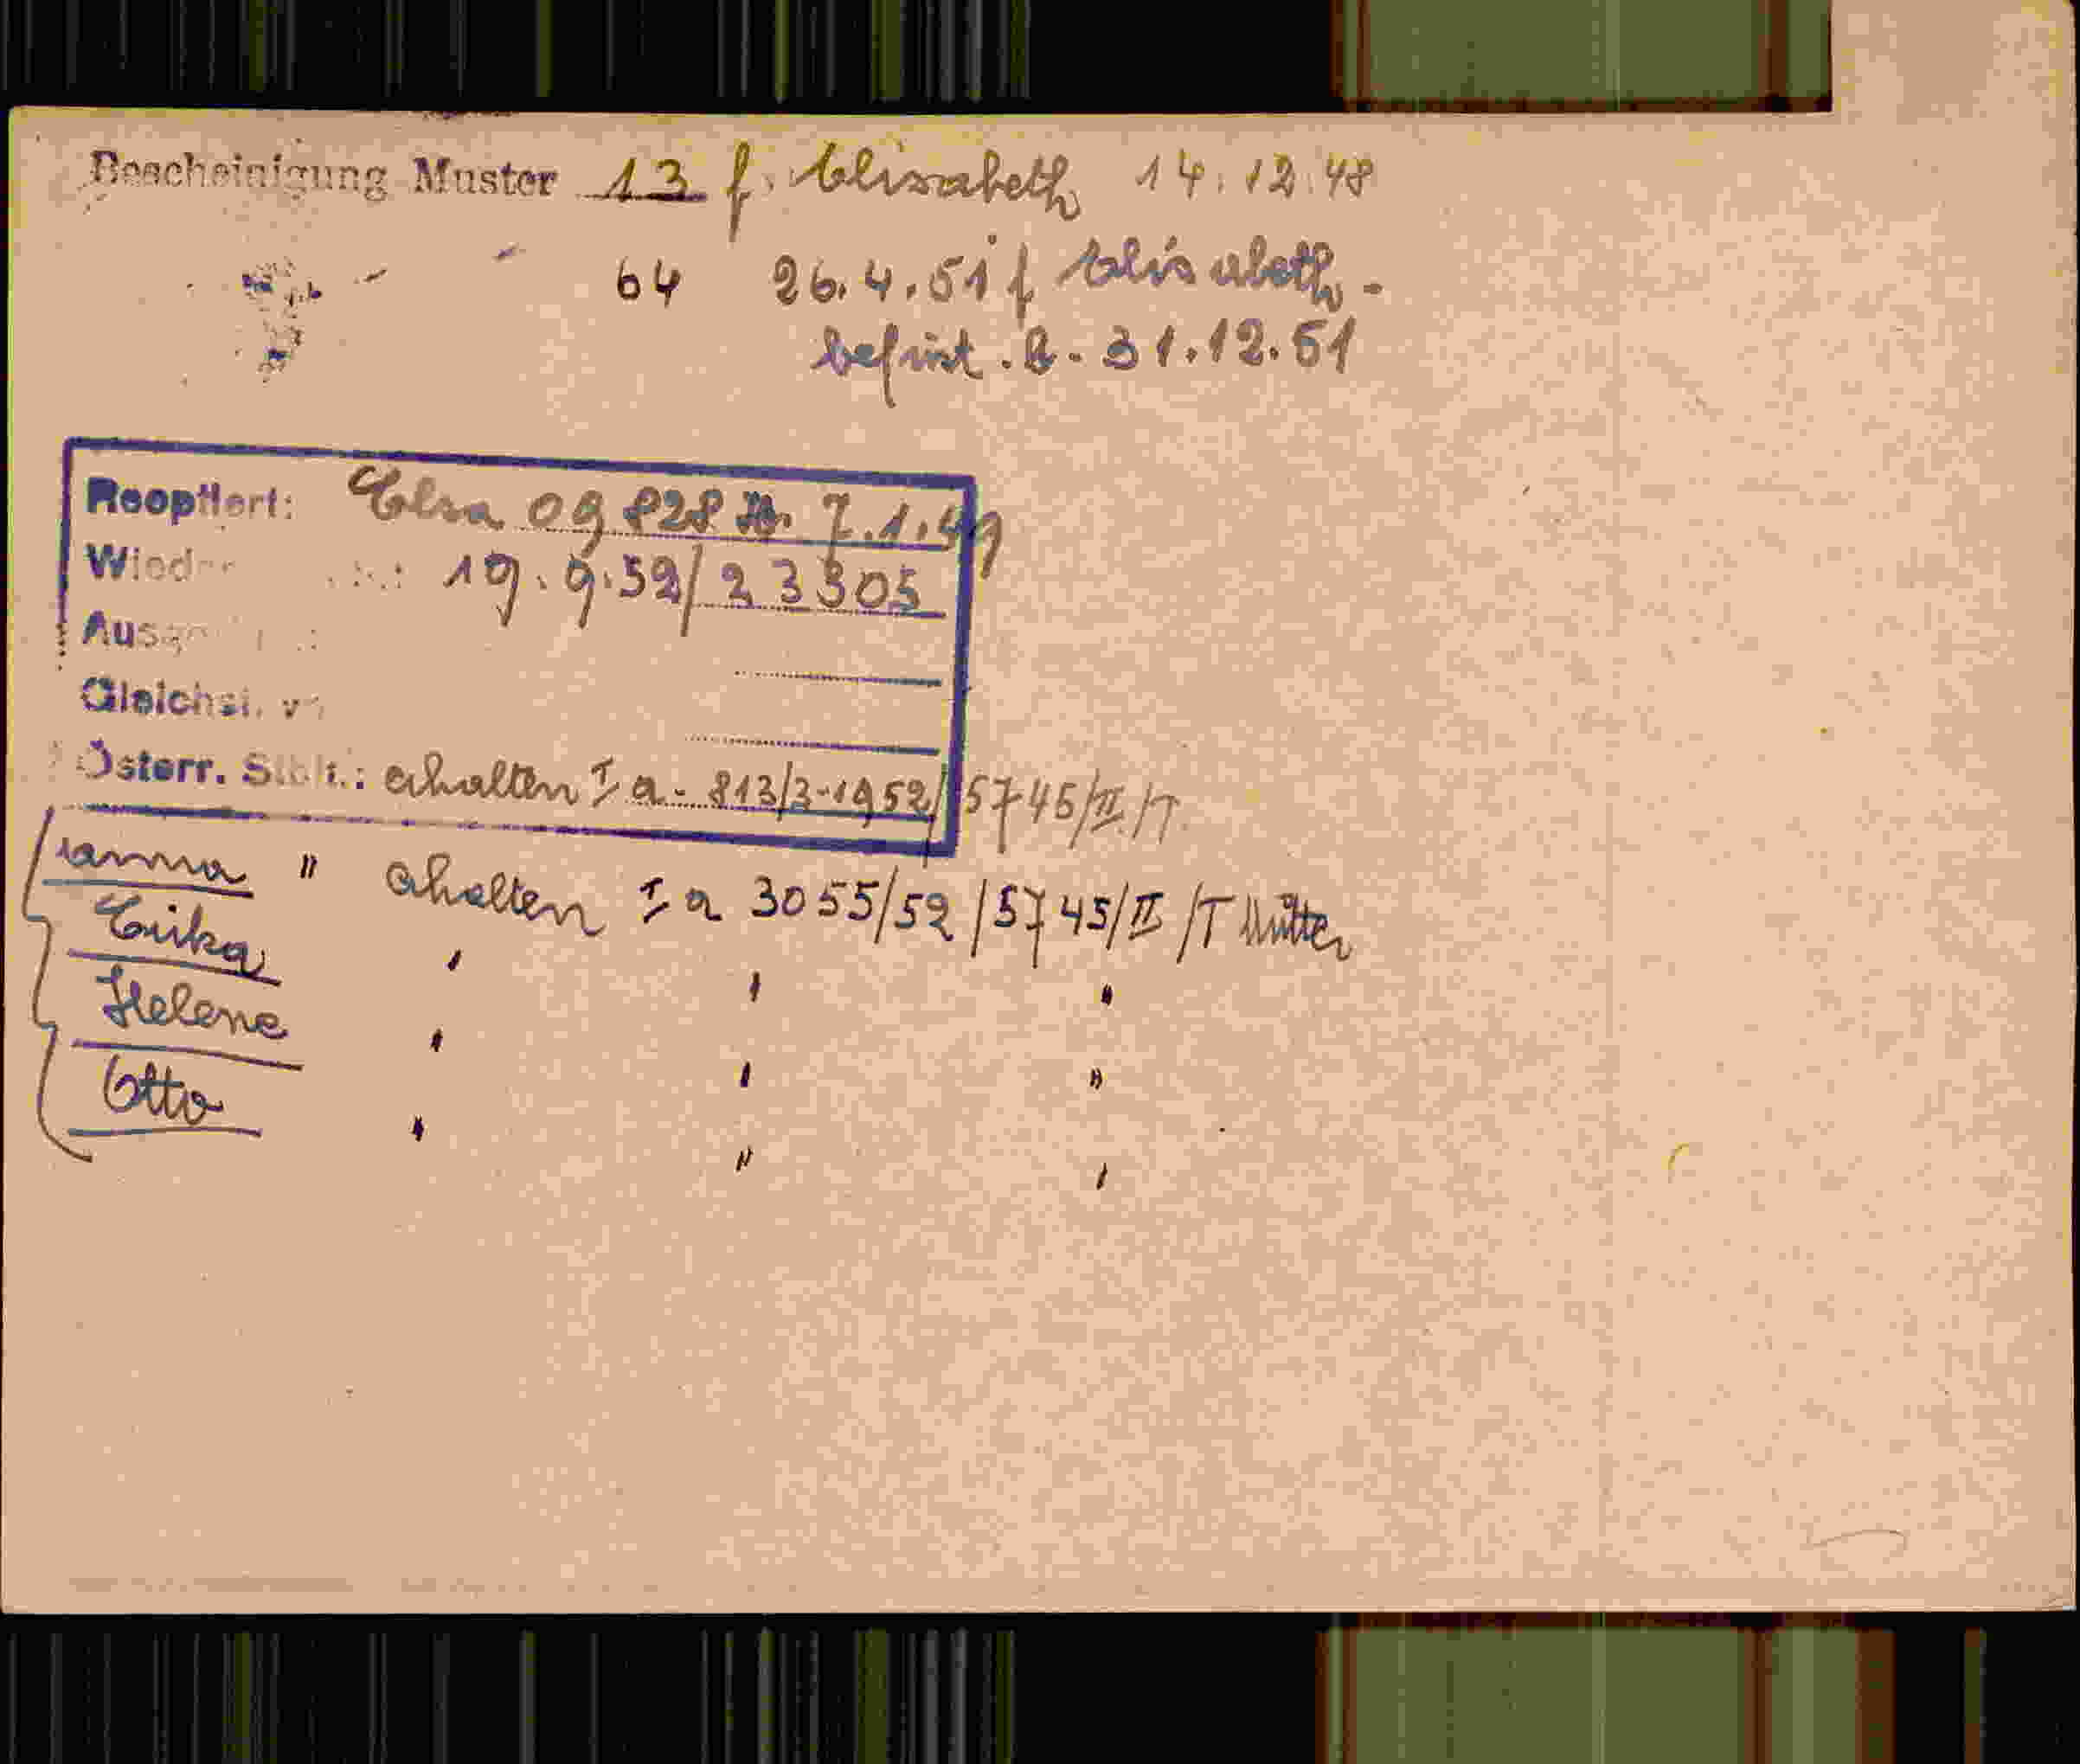 Bescheinigung Muster 13 f. Elisabeth 14.12.48
64 26.4.51 f Elisabeth -
befrist. b. 31.12.51
Reoptiert: Elsa 09828 7.1.49
19.9.52/23305
Gleichst.
Österr. Stbt.: erhalten I a - 813/3-1952/5745/II/T
" erhalten I a 3055/52/5745/II/T Mutter
Erika " " "
Helene " " "
Otto " " "